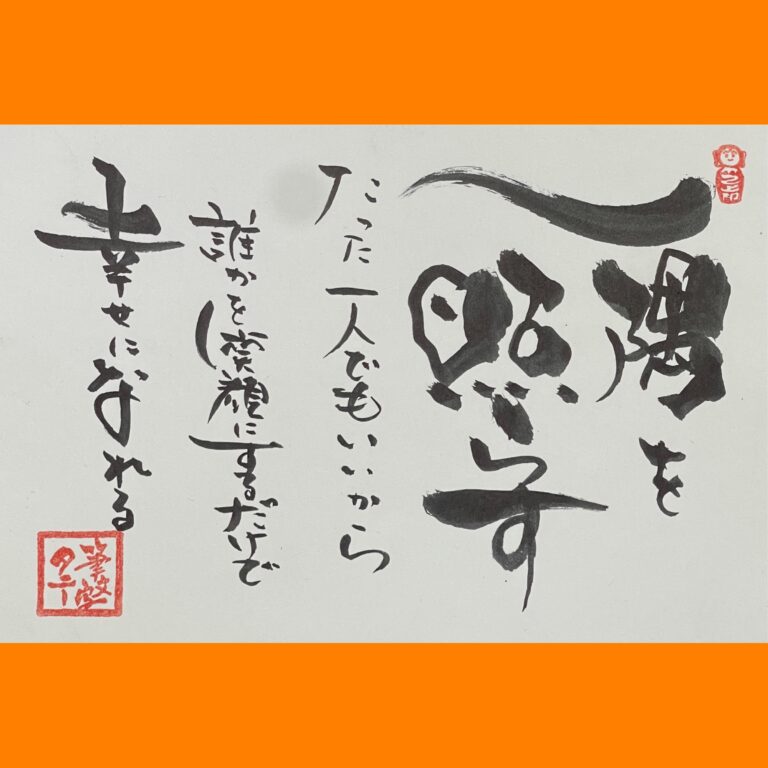 一隅を
照らす
たった一人でもいいから
誰かを笑顔にするだけで
幸せになれる